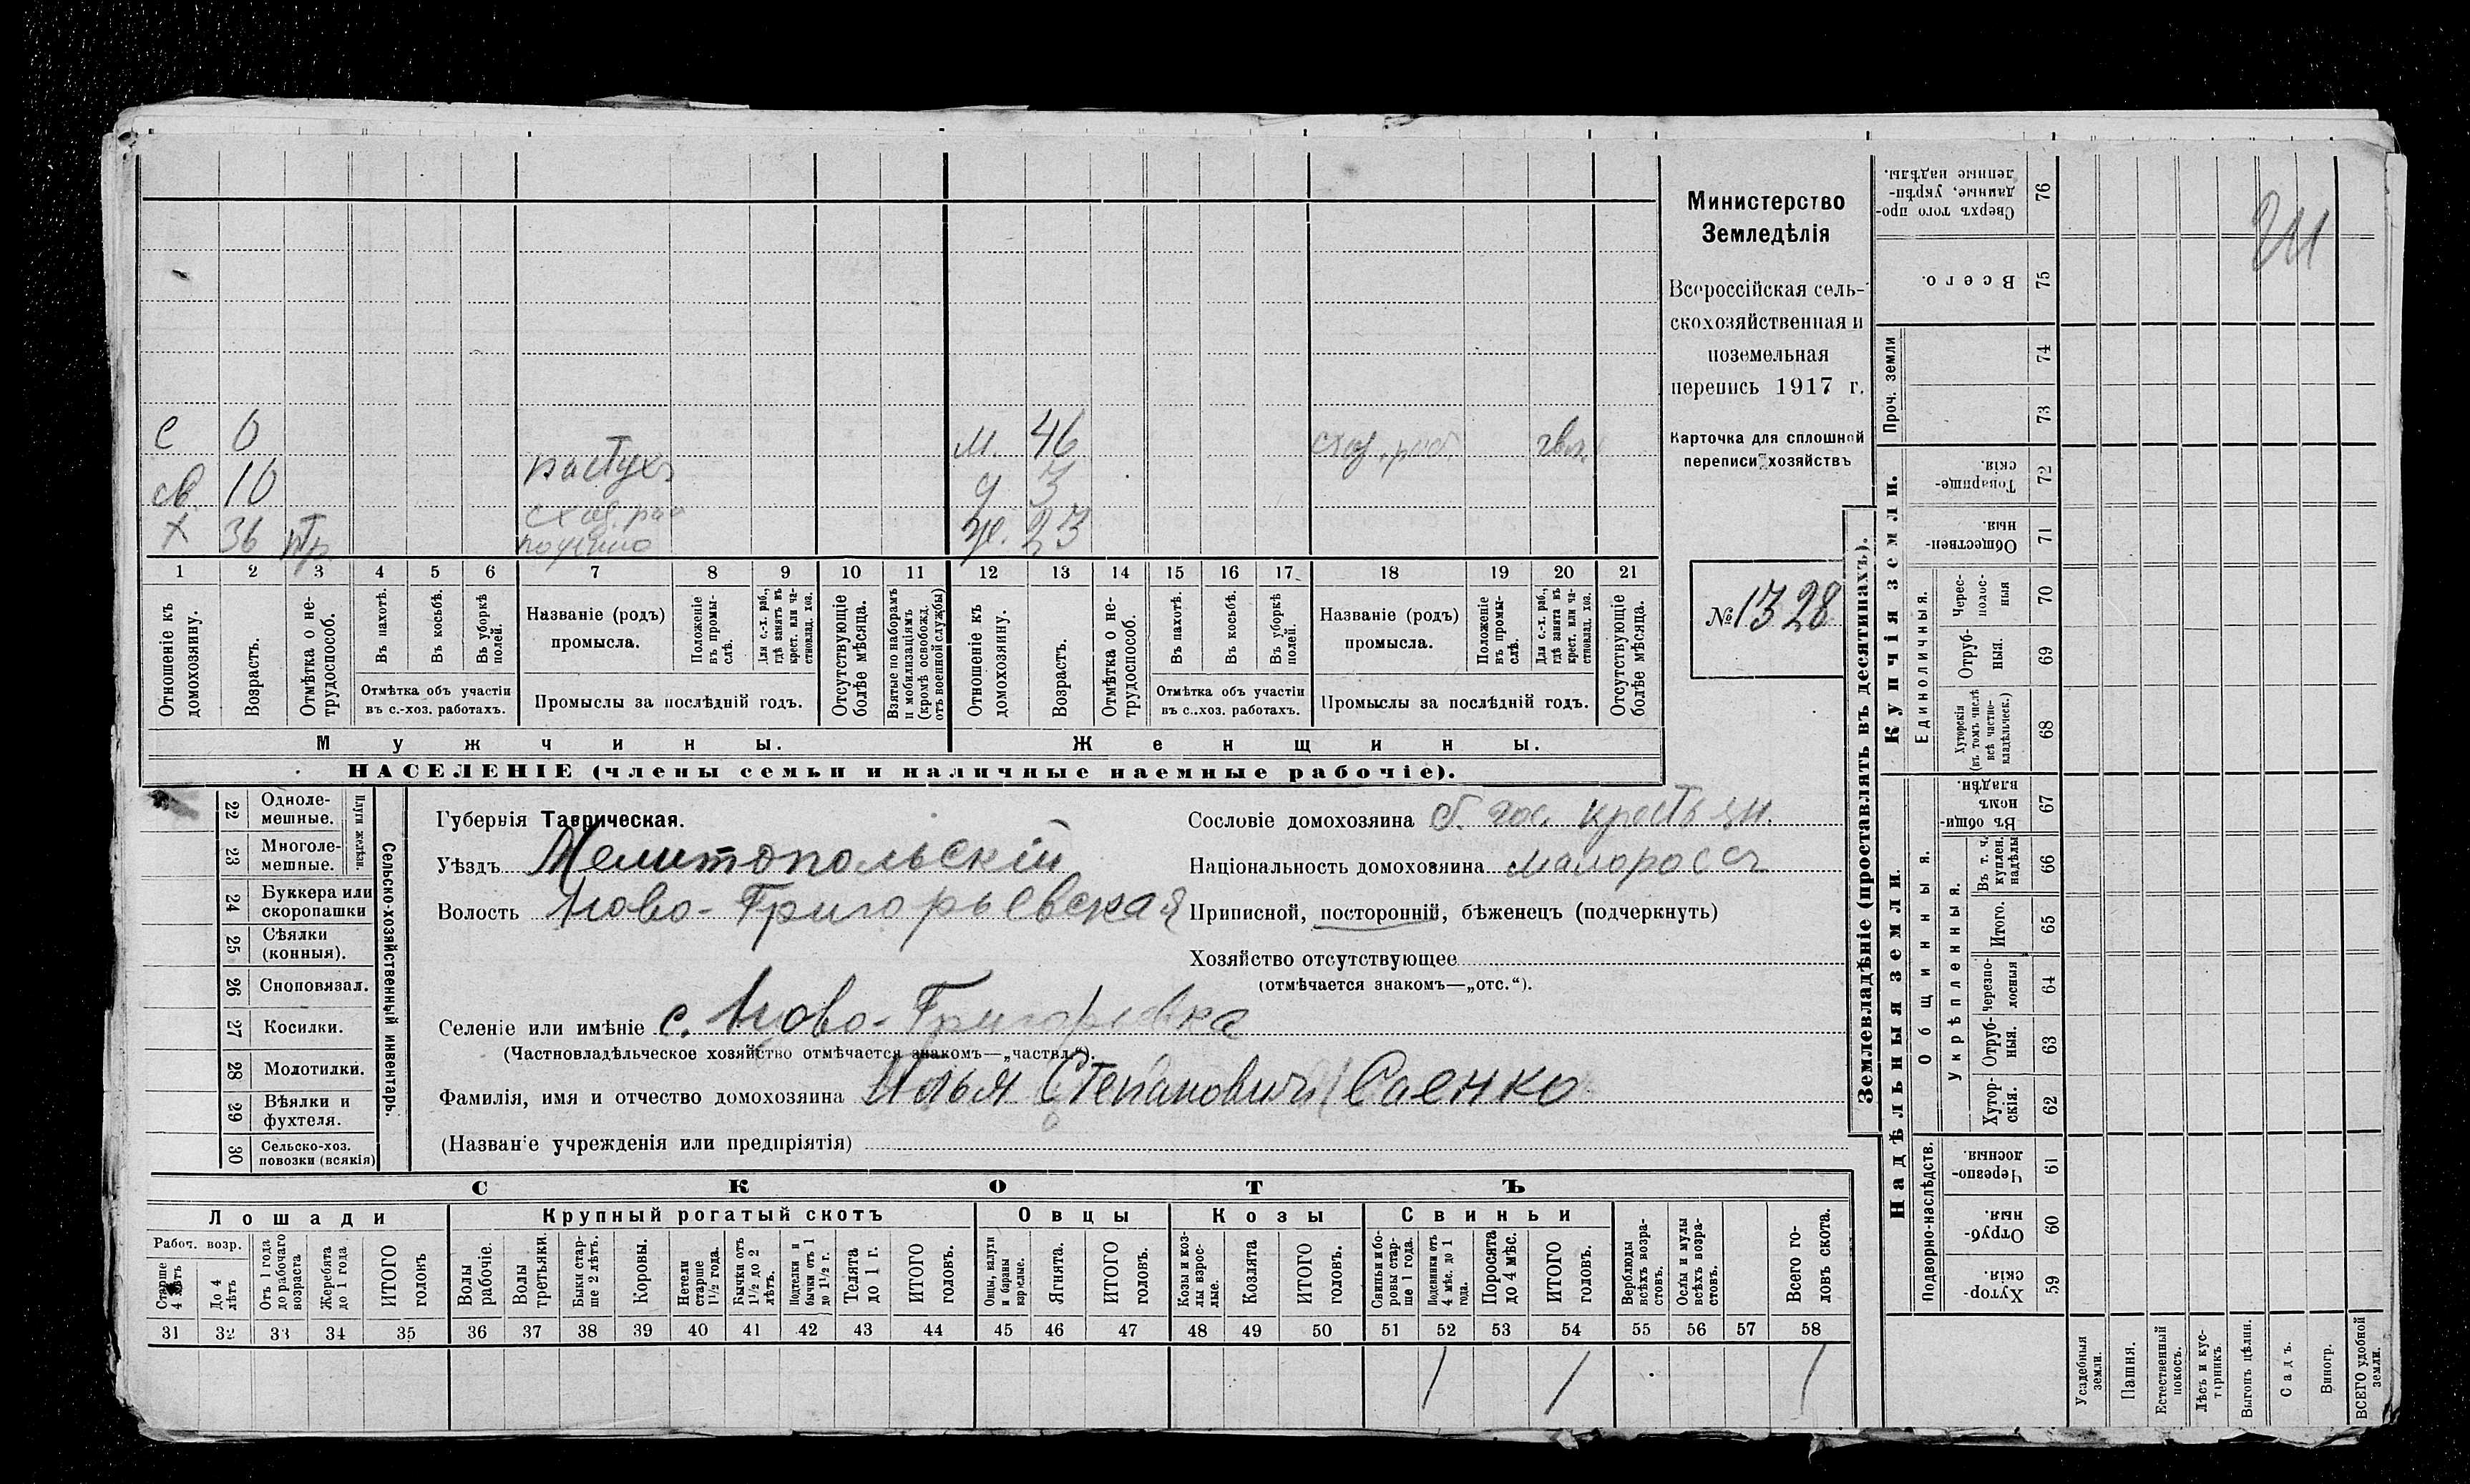 с 0 м. 46 схоз. раб.
св 10 пастухъ д 3
х 36 схоз. раб ж. 23
1 2 3 4 5 6 7 8 9 10 11 12 13 14 15 16 17 18 19 20 21
Отношеніе къ домохозяину.
Возрастъ.
Отмѣтка о не-трудоспособ.
Въ пахотѣ.
Въ косьбѣ.
Въ уборкѣ полей.
Отмѣтка объ участіи
въ с.-хоз. работахъ.
Названіе (родъ)
промысла.
Положеніе въ промы-слѣ.
Для с.-х. раб., гдѣ занятъ въ крест. или ча-стновлад. хоз.
Промыслы за послѣдній годъ.
Отсутствующіе болѣе мѣсяца.
Взятые по наборамъ и мобилизаціямъ (кромѣ освобожд. отъ военной службы)
Отношеніе къ домохозяину.
Возрастъ.
Отмѣтка о не-трудоспособ.
Въ пахотѣ.
Въ косьбѣ.
Въ уборкѣ полей.
Отмѣтка объ участіи
въ с.-хоз. работахъ.
Названіе (родъ)
промысла.
Положеніе въ промы-слѣ.
Для с.-х. раб., гдѣ занята въ крест. или ча-стновлад. хоз.
Промыслы за послѣдній годъ.
Отсутствующіе болѣе мѣсяца.
Мужчины. Женщины.
НАСЕЛЕНІЕ (члены семьи и наличные наемные рабочіе).
Министерство
Земледѣлія
Всероссійская сель-
скохозяйственная и
поземельная
перепись 1917 г.
Карточка для сплошной
переписи хозяйствъ
№ 1328
22 Одноле-мешные.
23 Многоле-мешные.
Плуги желѣзн.
24 Буккера или скоропашки
25 Сѣялки (конныя).
26 Сноповязал.
27 Косилки.
28 Молотилки.
29 Вѣялки и фухтеля.
30 Сельско-хоз. повозки (всякія)
Сельско-хозяйственный инвентарь.
Губернія Таврическая.
Уѣздъ Мелитопольскій
Волость Ново-Григорьевская
Селеніе или имѣніе с. Ново-Григорьевка
(Частновладѣльческое хозяйство отмѣчается знакомъ—„частвл.“).
Фамилія, имя и отчество домохозяина Илья Степановичъ Саенко
(Названіе учрежденія или предпріятія)
Сословіе домохозяина б. гос. крестьян.
Національность домохозяина малороссъ
Приписной, посторонній, бѣженецъ (подчеркнуть)
Хозяйство отсутствующее
(отмѣчается знакомъ—„отс.“).
СКОТЪ
Лошади Крупный рогатый скотъ Овцы Козы Свиньи
Рабоч. возр.
Старше 4 лѣтъ
До 4 лѣтъ
Отъ 1 года до рабочаго возраста
Жеребята до 1 года
ИТОГО головъ
Волы рабочіе.
Волы третьяки.
Быки стар-ше 2 лѣтъ.
Коровы.
Нетели старше 1½ года.
Бычки отъ 1½ до 2 лѣтъ.
Подтелки и бычки отъ 1 до 1½ г.
Телята до 1 г.
ИТОГО головъ.
Овцы, валухи и бараны взрослые.
Ягнята.
ИТОГО головъ.
Козы и коз-лы взрос-лые.
Козлята
ИТОГО головъ.
Свиньи и бо-ровы стар-ше 1 года.
Подсвинки отъ 4 мѣс. до 1 года.
Поросята до 4 мѣс.
ИТОГО головъ.
Верблюды всѣхъ возра-стовъ.
Ослы и мулы всѣхъ возра-стовъ.
Всего го-ловъ скота.
31 32 33 34 35 36 37 38 39 40 41 42 43 44 45 46 47 48 49 50 51 52 53 54 55 56 57 58
1 1 1
Землевладѣніе (проставлять въ десятинахъ).
Сверхъ того про-данные, укрѣп-ленные надѣлы. 76
Всего. 75
Проч. земли 74
73
Купчія земли.
Товарище-скія. 72
Обществен-ныя. 71
Единоличныя.
Черес-полос-ныя 70
Отруб-ныя. 69
Хуторскія (въ томъ числѣ всѣ частно-владѣльческ.) 68
Надѣльныя земли.
Общинныя.
Въ общи-номъ владѣн. 67
Укрѣпленныя.
Въ т. ч. куплен. надѣлы 66
Итого. 65
Черезпо-лосныя 64
Отруб-ныя. 63
Хутор-скія. 62
Подворно-наслѣдств.
Черезпо-лосныя. 61
Отруб-ныя. 60
Хутор-скія. 59
Усадебныя земли.
Пашня.
Естественный покосъ.
Лѣсъ и кус-тарникъ
Выгонъ цѣлин.
Садъ.
Виногр.
ВСЕГО удобной земли.